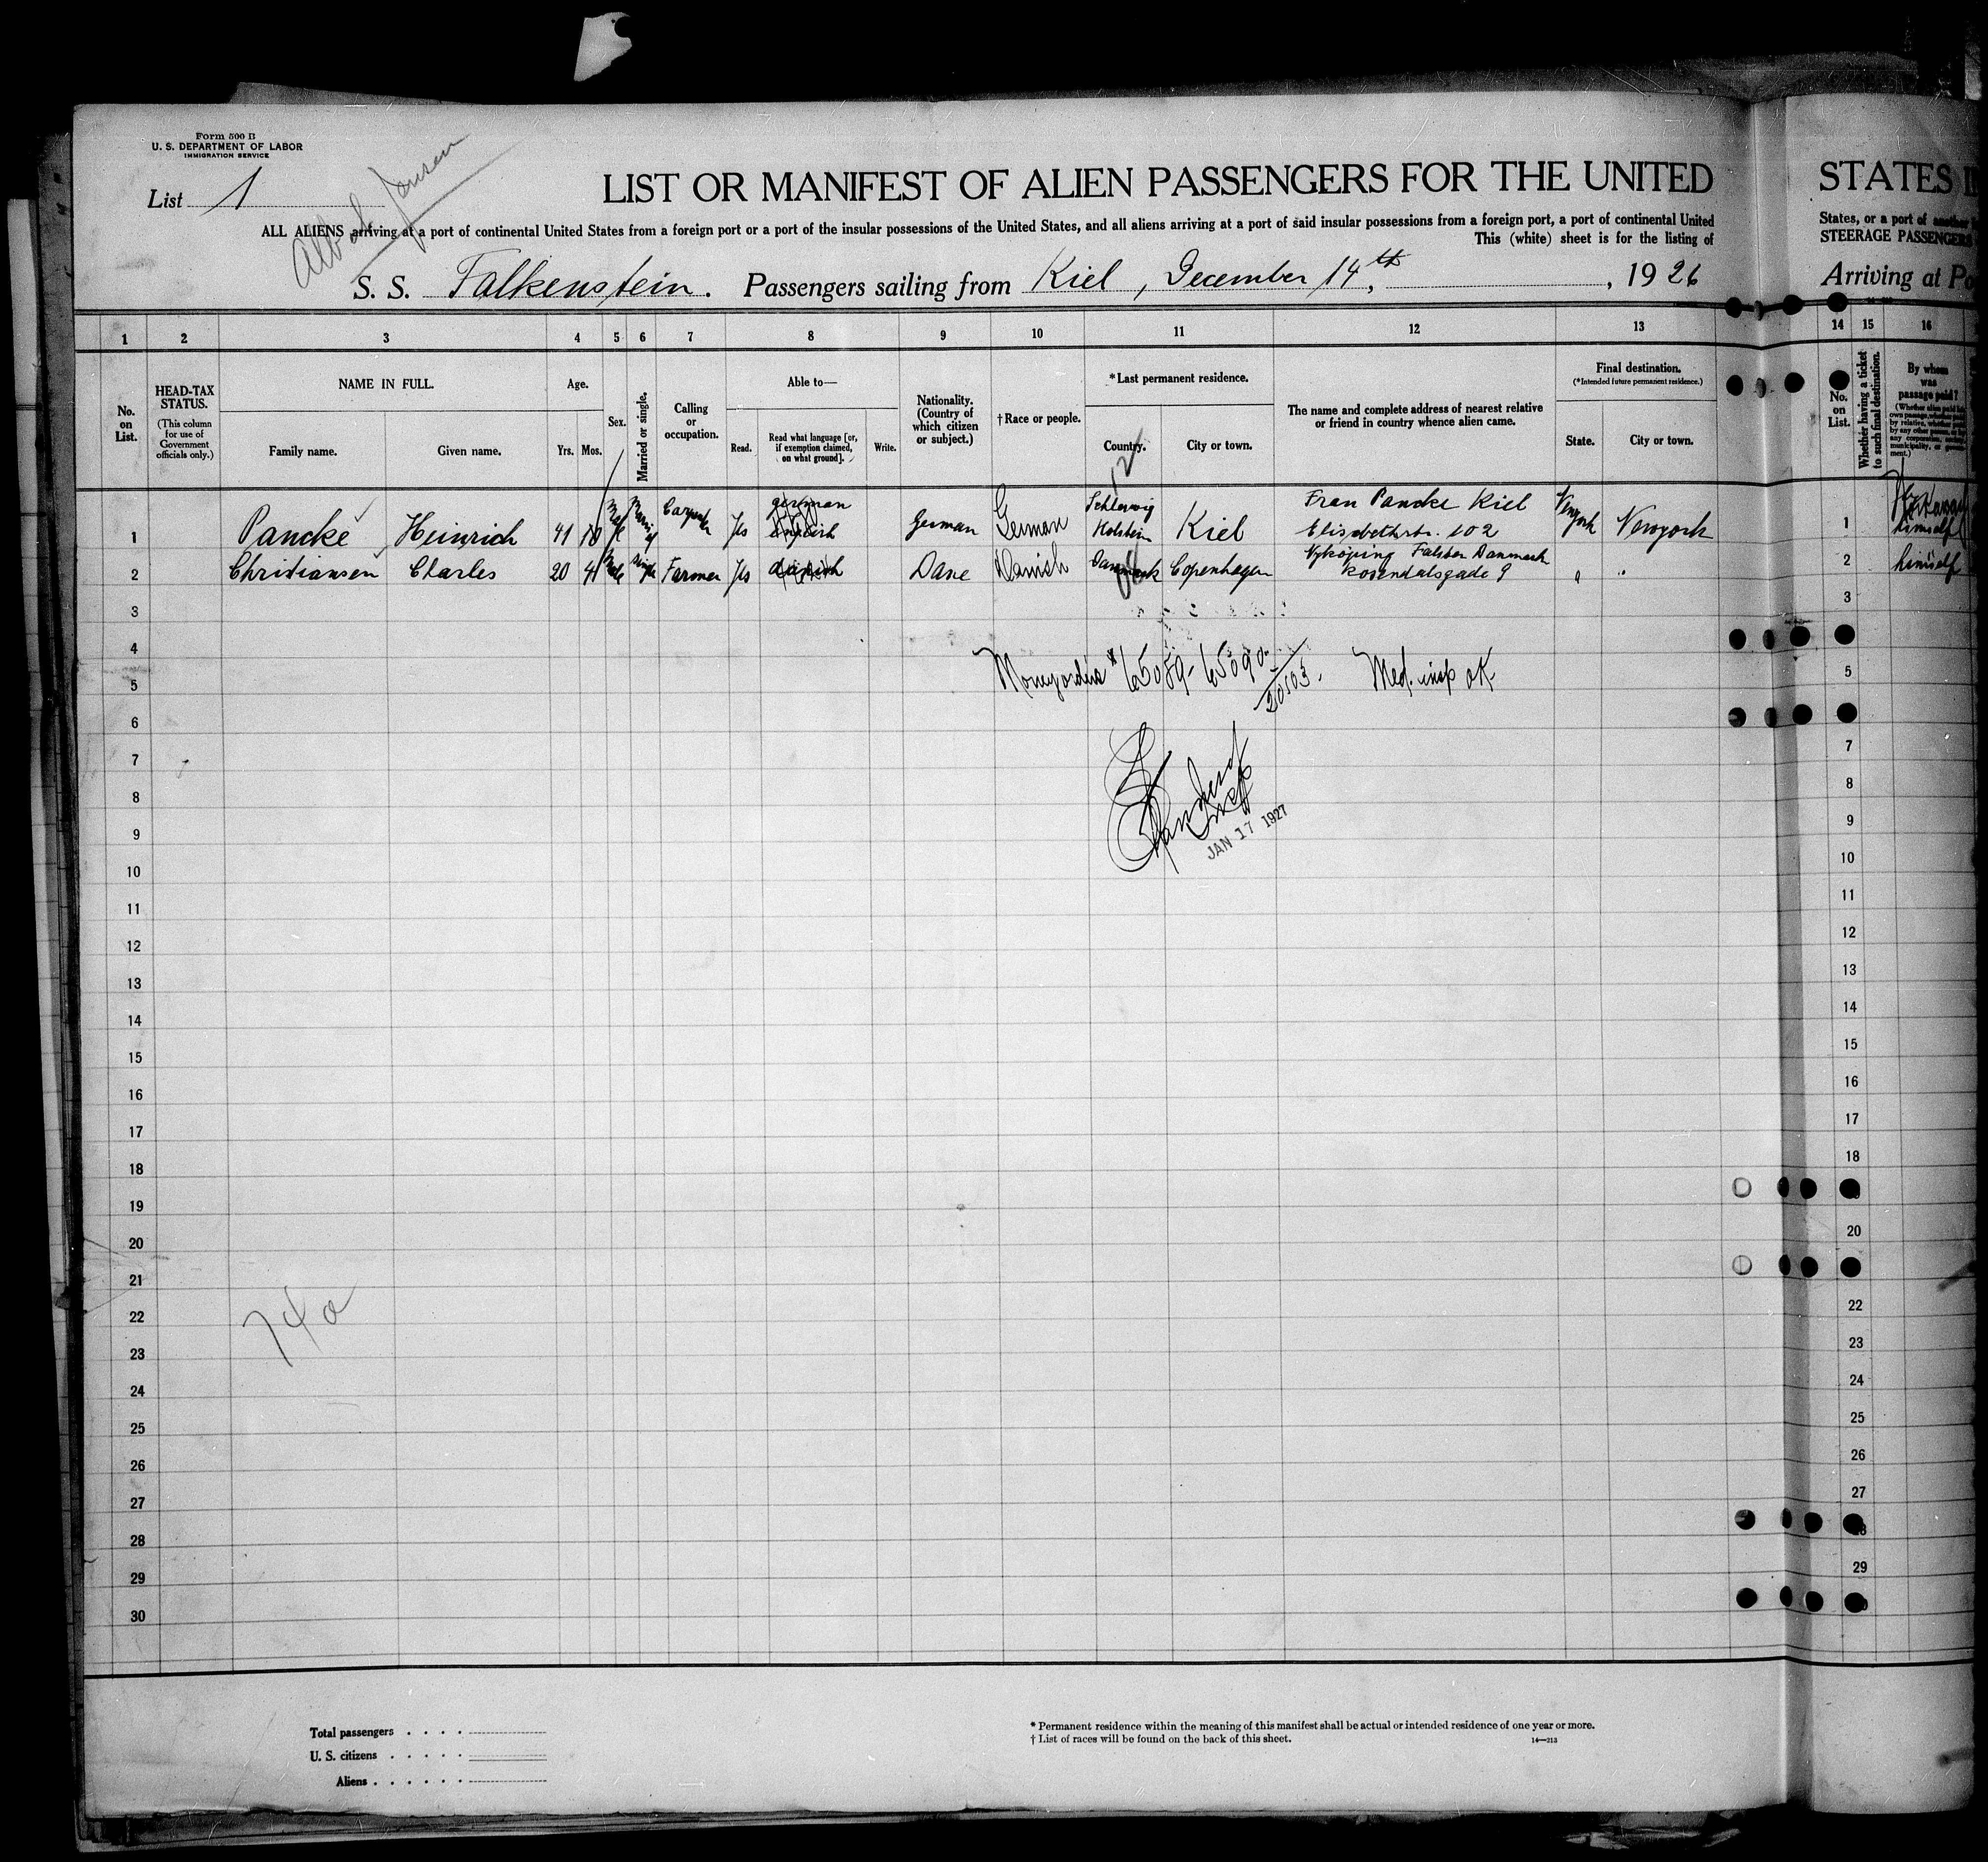 Form 500 B
U. S. DEPARTMENT OF LABOR
IMMIGRATION SERVICE
List 1
Jansen
LIST OR MANIFEST OF ALIEN PASSENGERS FOR THE UNITED
ALL ALIENS arriving at a port of continental United States from a foreign port or a port of the insular possessions of the United States, and all aliens arriving at a port of said insular possessions from a foreign port, a port of continental United
This (white) sheet is for the listing of
S. S. Falkenstein. Passengers sailing from Kiel, December 14th, 1926
STATES
States, or a port of another
STEERAGE PASSENGERS
Arriving at Po
1 2 3 4 5 6 7 8 9 10 11 12 13 14 15 16
No. on List.
HEAD-TAX STATUS.
(This column for use of Government officials only.)
NAME IN FULL.
Family name. Given name.
Age.
Yrs. Mos.
Sex.
Married or single.
Calling or occupation.
Able to—
Read. Read what language [or, if exemption claimed, on what ground]. Write.
Nationality. (Country of which citizen or subject.)
†Race or people.
*Last permanent residence.
Country. City or town.
12
The name and complete address of nearest relative or friend in country whence alien came.
Final destination.
(*Intended future permanent residence.)
State. City or town.
No. on List.
Whether having a ticket to such final destination.
By whom was passage paid?
1 Pancke Heinrich 41 10 Male Carpenter Yes german German German Schleswig Holstein Kiel Frau Pancke Kiel Elisabethstr. 102 Newyork Newyork 1 himself
2 Christiansen Charles 20 4 Male single Farmer Yes Dane Danish Danmark Copenhagen Nykoping Falster Danmark Rosendalsgade 9 " " 2 himself
3 3
4
5 5
Moneyorders # 65089-65090- 20103. Med. insp ok
6
7 7
8 8
9 9
JAN 17 1927
10 10
11 11
12 12
13 13
14 14
15 15
16 16
17 17
18 18
19
20 20
21
22 22
74 a
23 23
24 24
25 25
26 26
27 27
28
29 29
30
Total passengers
U. S. citizens
Aliens
* Permanent residence within the meaning of this manifest shall be actual or intended residence of one year or more.
† List of races will be found on the back of this sheet.
14—213